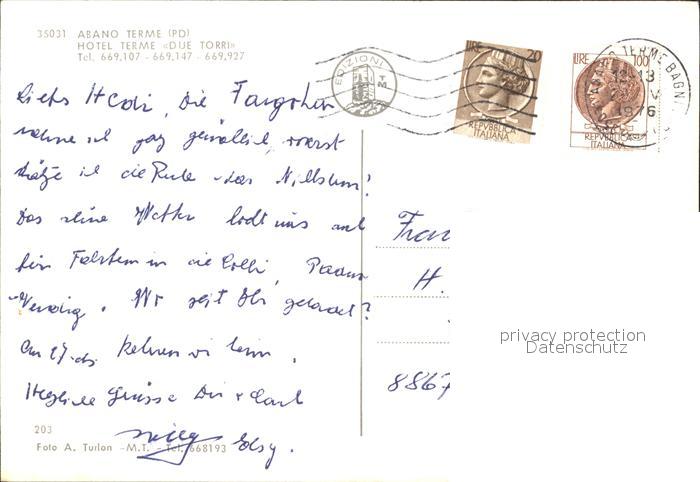 35031 ABANO TERME (PD)
HOTEL TERME «DUE TORRI»
Tel. 669.107 - 669.147 - 669.927
EDIZIONI
TM
LIRE 20
REPVBBLICA
ITALIANA
LIRE 100
REPVBBLICA
ITALIANA
TERME BAGNI
12-13
1976
Liebe Hedi, Die
nehme ich ganz gemütlich, vorerst
ich die Ruhe + das Nichtstun!
Das schöne Wetter lockt uns auch
für Fahrten in die Colli, Padua
Venedig. Wo seit Ihr gelandet?
Am 27. ds kehren wir heim.
Herzliche Grüsse Dir +
Elsy.
Frau
H.
8867
203
Foto A. Turlon -M.T. - Tel. 668193
privacy protection
Datenschutz